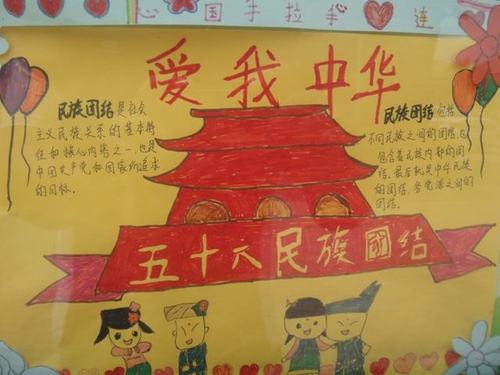 心 国 手 拉 手 连
爱我中华
民族团结是社会
主义民族关系的基本特
征和核心内容之一,也是
中国共产党和国家所追求
的目标。
民族团结包括
不同民族之间的团结,也
包含着民族内部的团
结。最后就是中华民族
的团结、各党派之间的
团结。
五十六民族团结